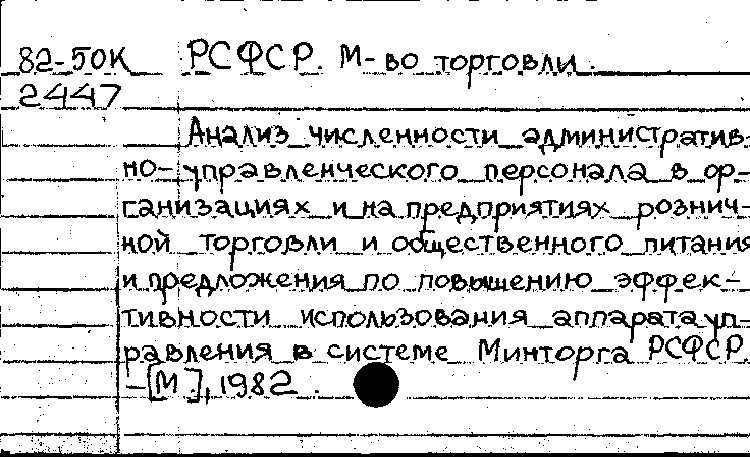 82-50К РСФСР. М-во торговли.
2447
Анализ численности административ-
но-управленческого персонала в ор-
ганизациях и на предприятиях рознич-
ной торговли и общественного питания
и предложения по повышению эффек-
тивности использования аппарата уп-
равления в системе Минторга РСФСР.
-[М.], 1982.